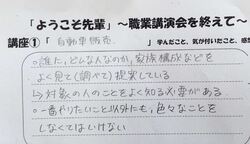 「ようこそ先輩」～職業講演会を終えて～
講座①「自動車販売」学んだこと、気が付いたこと、感
○誰に、どんな人なのか、家族構成などを
よく見て(調べて)提案している
→対象の人のことをよく知る必要がある
○一番やりたいこと以外にも、色々なことを
しなくてはいけない